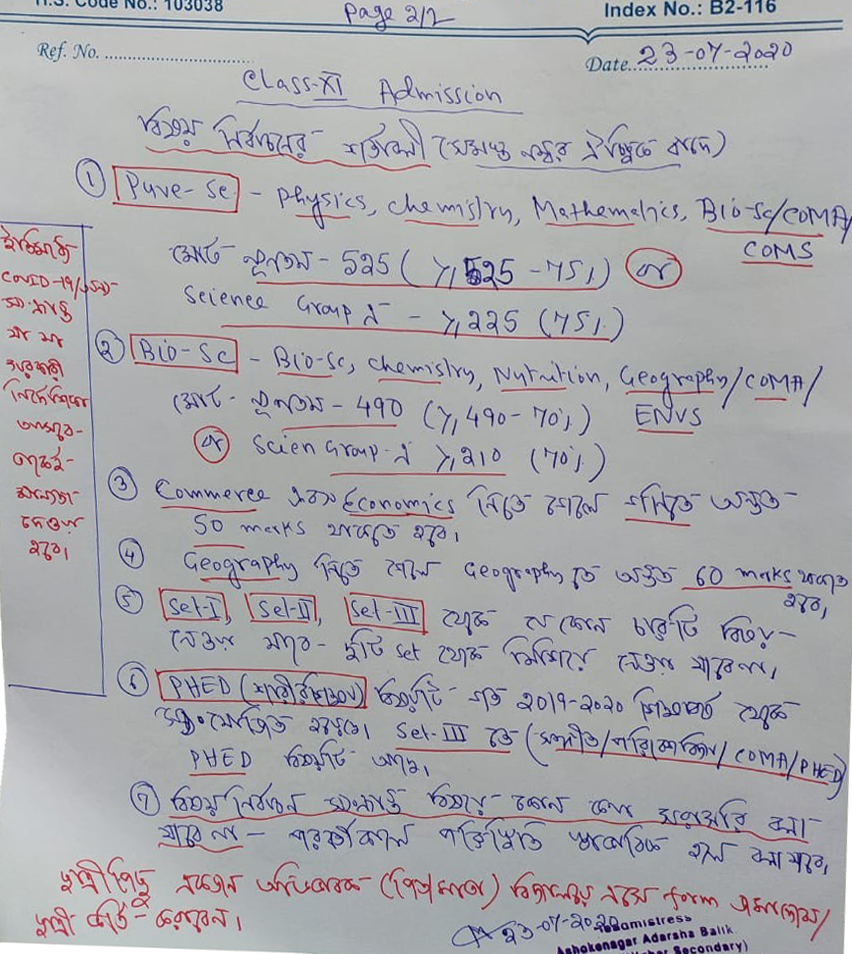 H.S. Code No.: 103038
Page 2/2
Index No.: B2-116
Ref. No.
Date. 23-07-2020
Class-XI Admission
বিষয় নির্বাচনের শর্তাবলী (সমস্ত নম্বর ঐচ্ছিক বাদে)
① Pure-Sc - Physics, Chemistry, Mathematics, Bio-Sc/COMA/
COMS
মোট ন্যূনতম - 525 (≥, 525 - 75%) or
Science Group এ - ≥, 225 (75%)
② Bio-Sc - Bio-Sc, Chemistry, Nutrition, Geography/COMA/
ENVS
মোট - ন্যূনতম - 490 (≥, 490 - 70%)
or Scien Group এ ≥, 210 (70%)
③ Commerce এবং Economics নিতে গেলে গণিতে অন্তত
50 marks থাকতে হবে।
④ Geography নিতে গেলে Geography তে অন্তত 60 marks থাকতে
হবে।
⑤ Set-I, Set-II, Set-III থেকে যে কোন চারটি বিষয়
নেওয়া যাবে - দুটি Set থেকে মিশিয়ে নেওয়া যাবে না।
⑥ PHED (শারীরশিক্ষা) বিষয়টি গত 2019-2020 শিক্ষাবর্ষ থেকে
সংযোজিত হয়েছে। Set-III তে (সঙ্গীত/পরিবেশবিজ্ঞান/COMA/PHED)
PHED বিষয়টি আছে।
⑦ বিষয় নির্বাচন সংক্রান্ত বিষয়ে কোন কথা সরাসরি বলা
যাবে না - পরবর্তীকালে পরিস্থিতি স্বাভাবিক হলে বলা যাবে।
COVID-19
সংক্রান্ত
যা যা
নির্দেশিকা
আসবে
মান্যতা
দেওয়া
হবে।
ছাত্রীপিছু একজন অভিভাবক (পিতা/মাতা) বিদ্যালয়ে এসে form জমা দেবেন/
ছাত্রী ভর্তি করাবেন।
23-07-2020
Headmistress
Ashokenagar Adarsha Balik
Secondary)